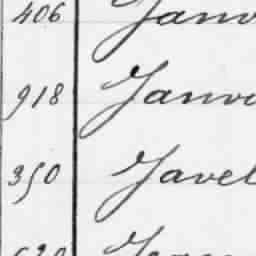 406 Janv
918 Janvi
350 Javel